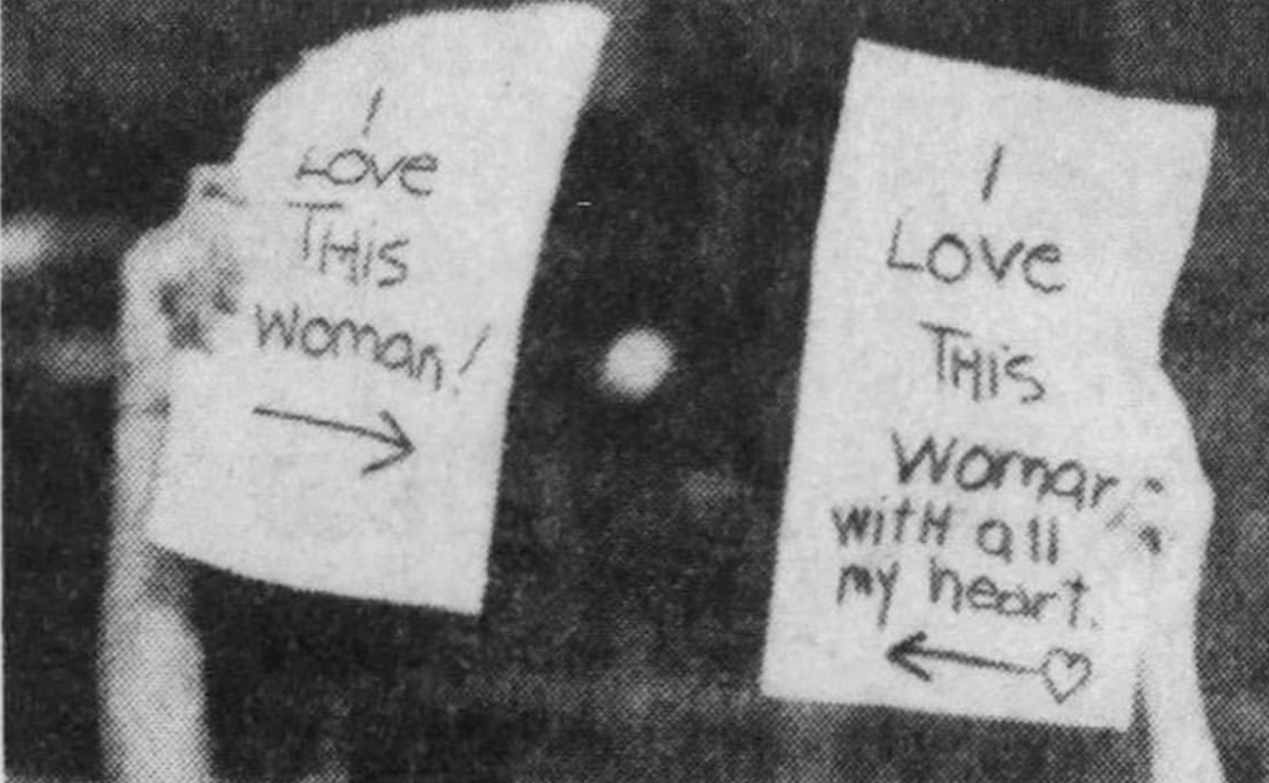 I
Love
THIS
Woman!
→
I
Love
THiS
Woman
witH all
my heart.
←♡